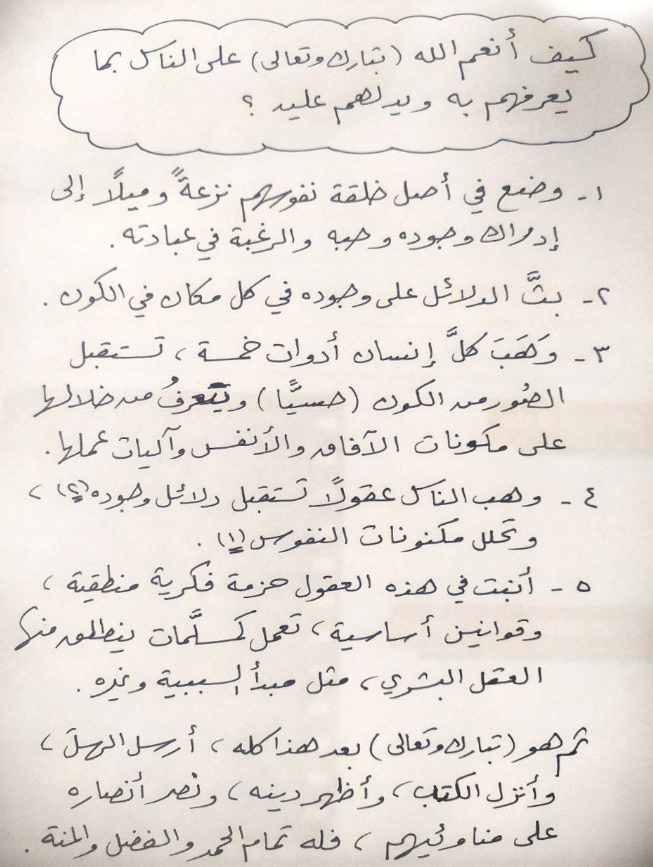 كيف أنعم الله (تبارك وتعالى) على الناس بما
يعرفهم به ويدلهم عليه ؟
١- وضع في أصل خلقة نفوسهم نزعةً وميلًا إلى
إدراك وجوده وحبه والرغبة في عبادته.
٢- بثَّ الدلائل على وجوده في كل مكان في الكون.
٣- وَهَبَ كلَّ إنسان أدوات خمسة، تستقبل
الصُور من الكون (حسيًّا) ويتعرفُ من خلالها
على مكونات الآفاق والأنفس وآليات عملها.
٤- وهب الناس عقولًا تستقبل دلائل وجوده (٢)،
وتحلل مكنونات النفوس (١).
٥- أنبت في هذه العقول حزمة فكرية منطقية،
وقوانين أساسية، تعمل كمسلَّمات ينطلق منها
العقل البشري، مثل مبدأ السببية وغيره.
ثم هو (تبارك وتعالى) بعد هذا كله، أرسل الرسل،
وأنزل الكتب، وأظهر دينه، ونصر أنصاره
على مناوئيهم، فله تمام الحمد والفضل والمنة.